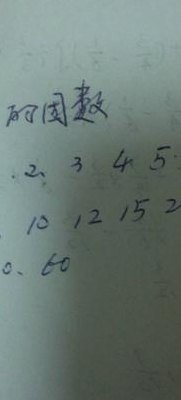 的因数
.2、3 4 5
10 12 15 2
0、60